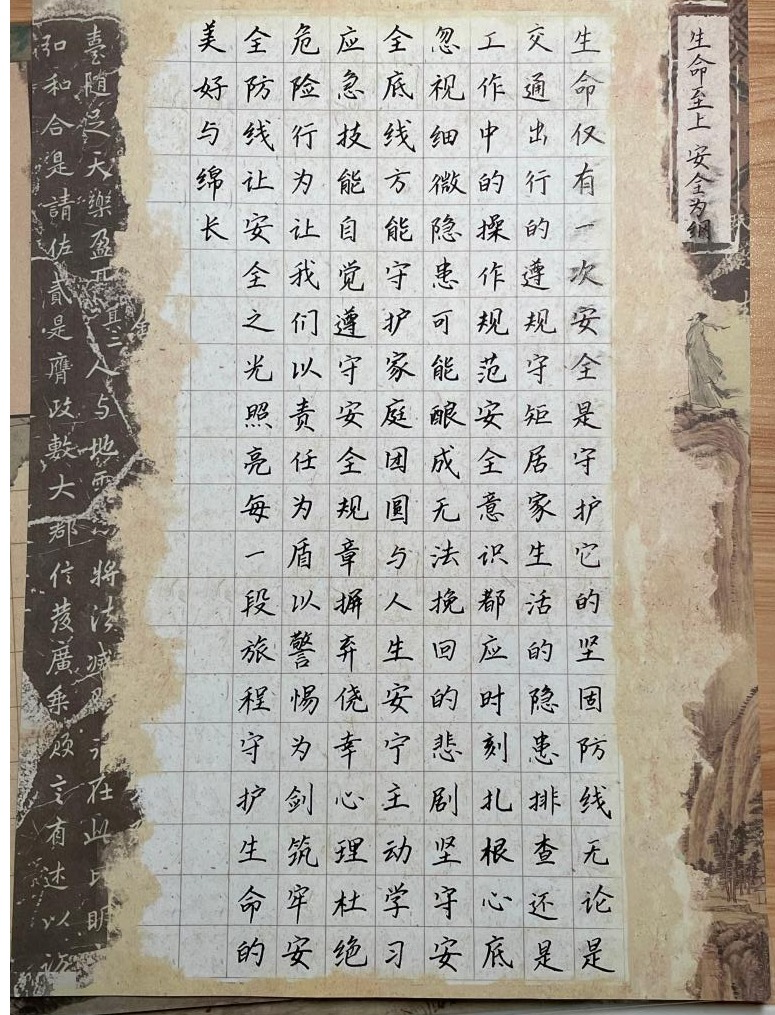 生命至上 安全为纲
生命仅有一次安全是守护它的坚固防线无论是
交通出行的遵规守矩居家生活的隐患排查还是
工作中的操作规范安全意识都应时刻扎根心底
忽视细微隐患可能酿成无法挽回的悲剧坚守安
全底线方能守护家庭团圆与人生安宁主动学习
应急技能自觉遵守安全规章摒弃侥幸心理杜绝
危险行为让我们以责任为盾以警惕为剑筑牢安
全防线让安全之光照亮每一段旅程守护生命的
美好与绵长
臺隨足大樂盈 人与地 将法滅 在此
和合是請佐貳是膺政數大都信茂廣乘 言有述以